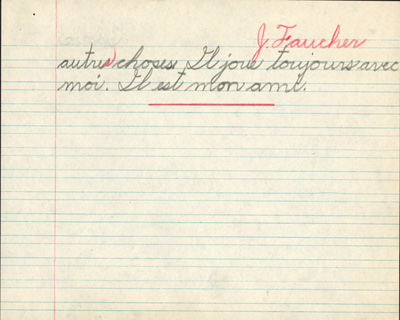 J. Faucher
autres choses Il joue toujours avec
moi. Il est mon ami.